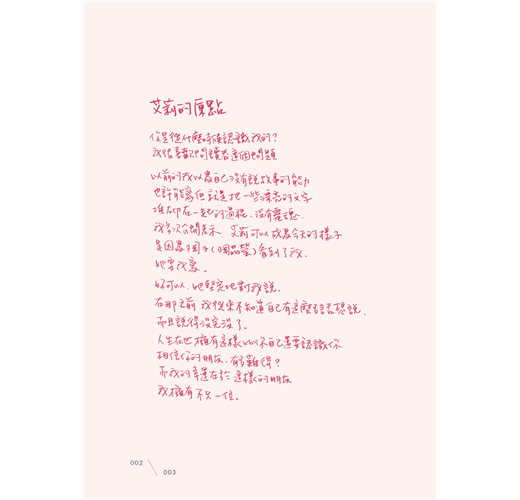 艾莉的原點
你是從什麼時候認識我的?
我很喜歡問讀者這個問題
以前的我以為自己沒有說故事的能力
也許能寫但就是把一些漂亮的文字
堆砌在一起的過程,沒有靈魂.
我多次公開表示 艾莉可以成為今天的樣子
是因為陶子(陶晶瑩)看到了我.
她要我寫。
妳可以,她堅定地對我說.
在那之前 我從來不知道自己有這麼多話想說,
而且說得沒完沒了。
人生在世擁有這樣比你自己還要認識你
相信你的朋友.有多難得?
而我的幸運在於 這樣的朋友
我擁有不只一位。
002
003